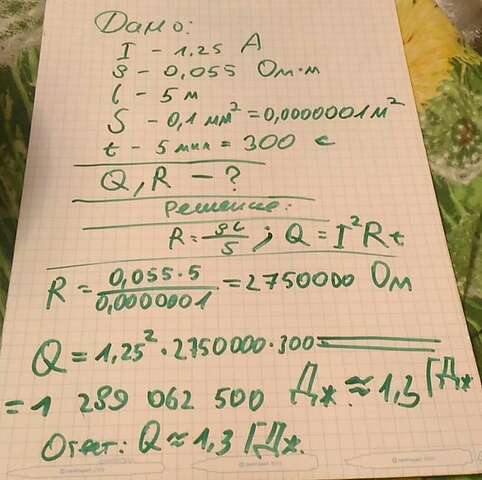 Дано:
I - 1.25 A
ρ - 0,055 Ом·м
l - 5 м
S - 0,1 мм² = 0,0000001 м²
t - 5 мин = 300 с
Q, R - ?
Решение:
R = ρl/S ; Q = I²Rt
R = 0,055·5/0,0000001 = 2750000 Ом
Q = 1,25²·2750000·300=
= 1 289 062 500 Дж ≈ 1,3 ГДж
Ответ: Q ≈ 1,3 ГДж.